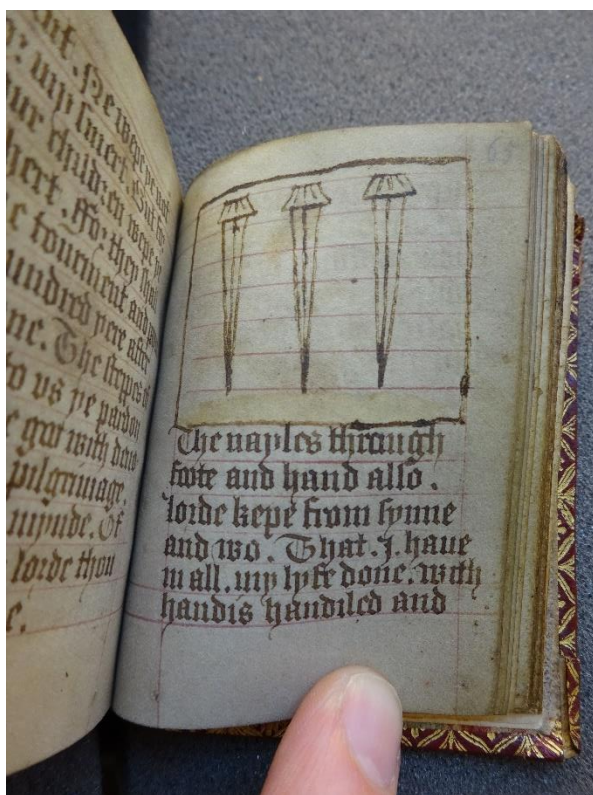 nt. Ne wepe ye not
ur children wepe
hert. ffor they shall
tourment and
hundred yere after
ne. The stripes of
to us ye pardon
got with devo
pilgrimage.
mynde. Of
lorde thou
65
The nayles through
foote and hand allso.
lorde kepe from synne
and wo. That. J. haue
in all. my lyfe done. with
handis handiled and